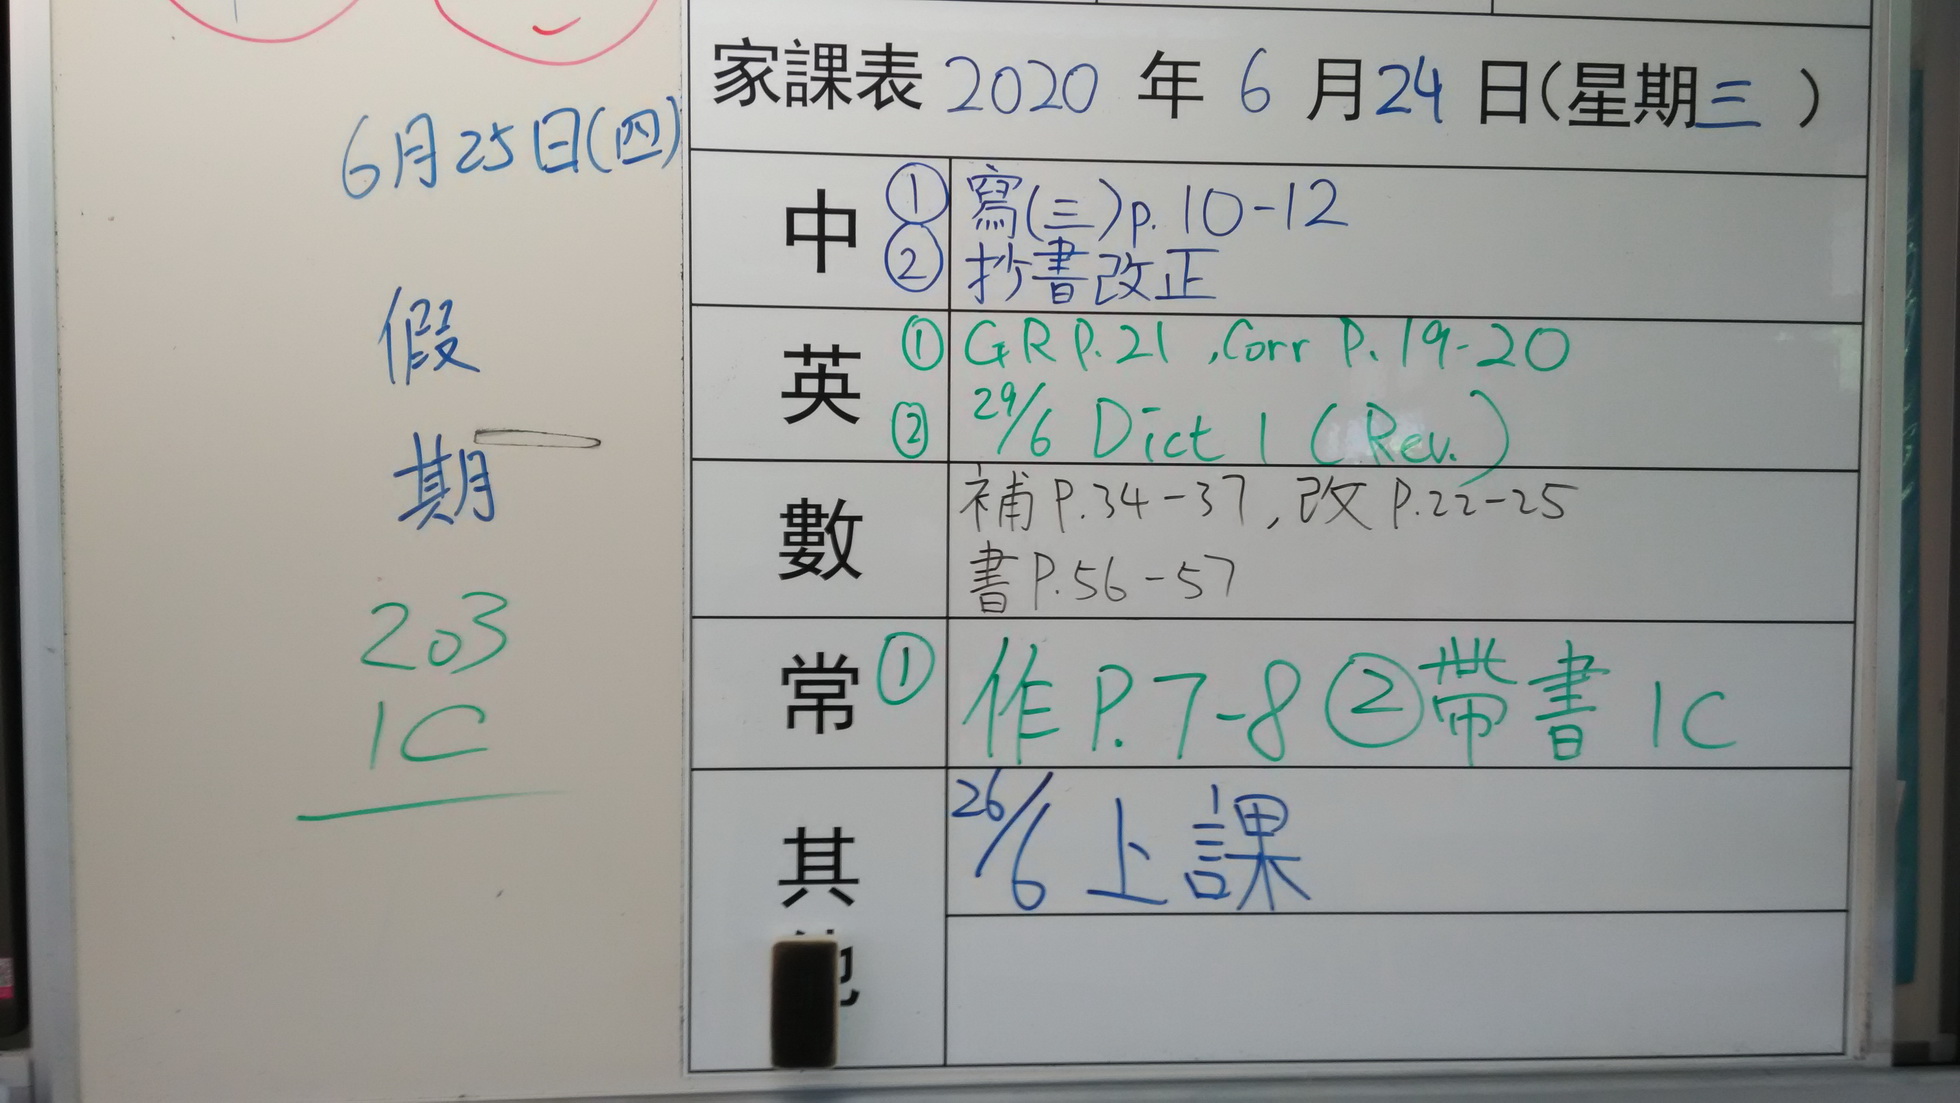 6月25日(四)
假
期
203
1C
家課表 2020 年 6 月 24 日(星期三)
中 ① 寫(三)p.10-12
② 抄書改正
英 ① GR P.21 ,Corr P.19-20
② 29/6 Dict 1 (Rev.)
數 補P.34-37, 改P.22-25
書P.56-57
常 ① 作P.7-8 ②帶書 1C
其他 26/6 上課